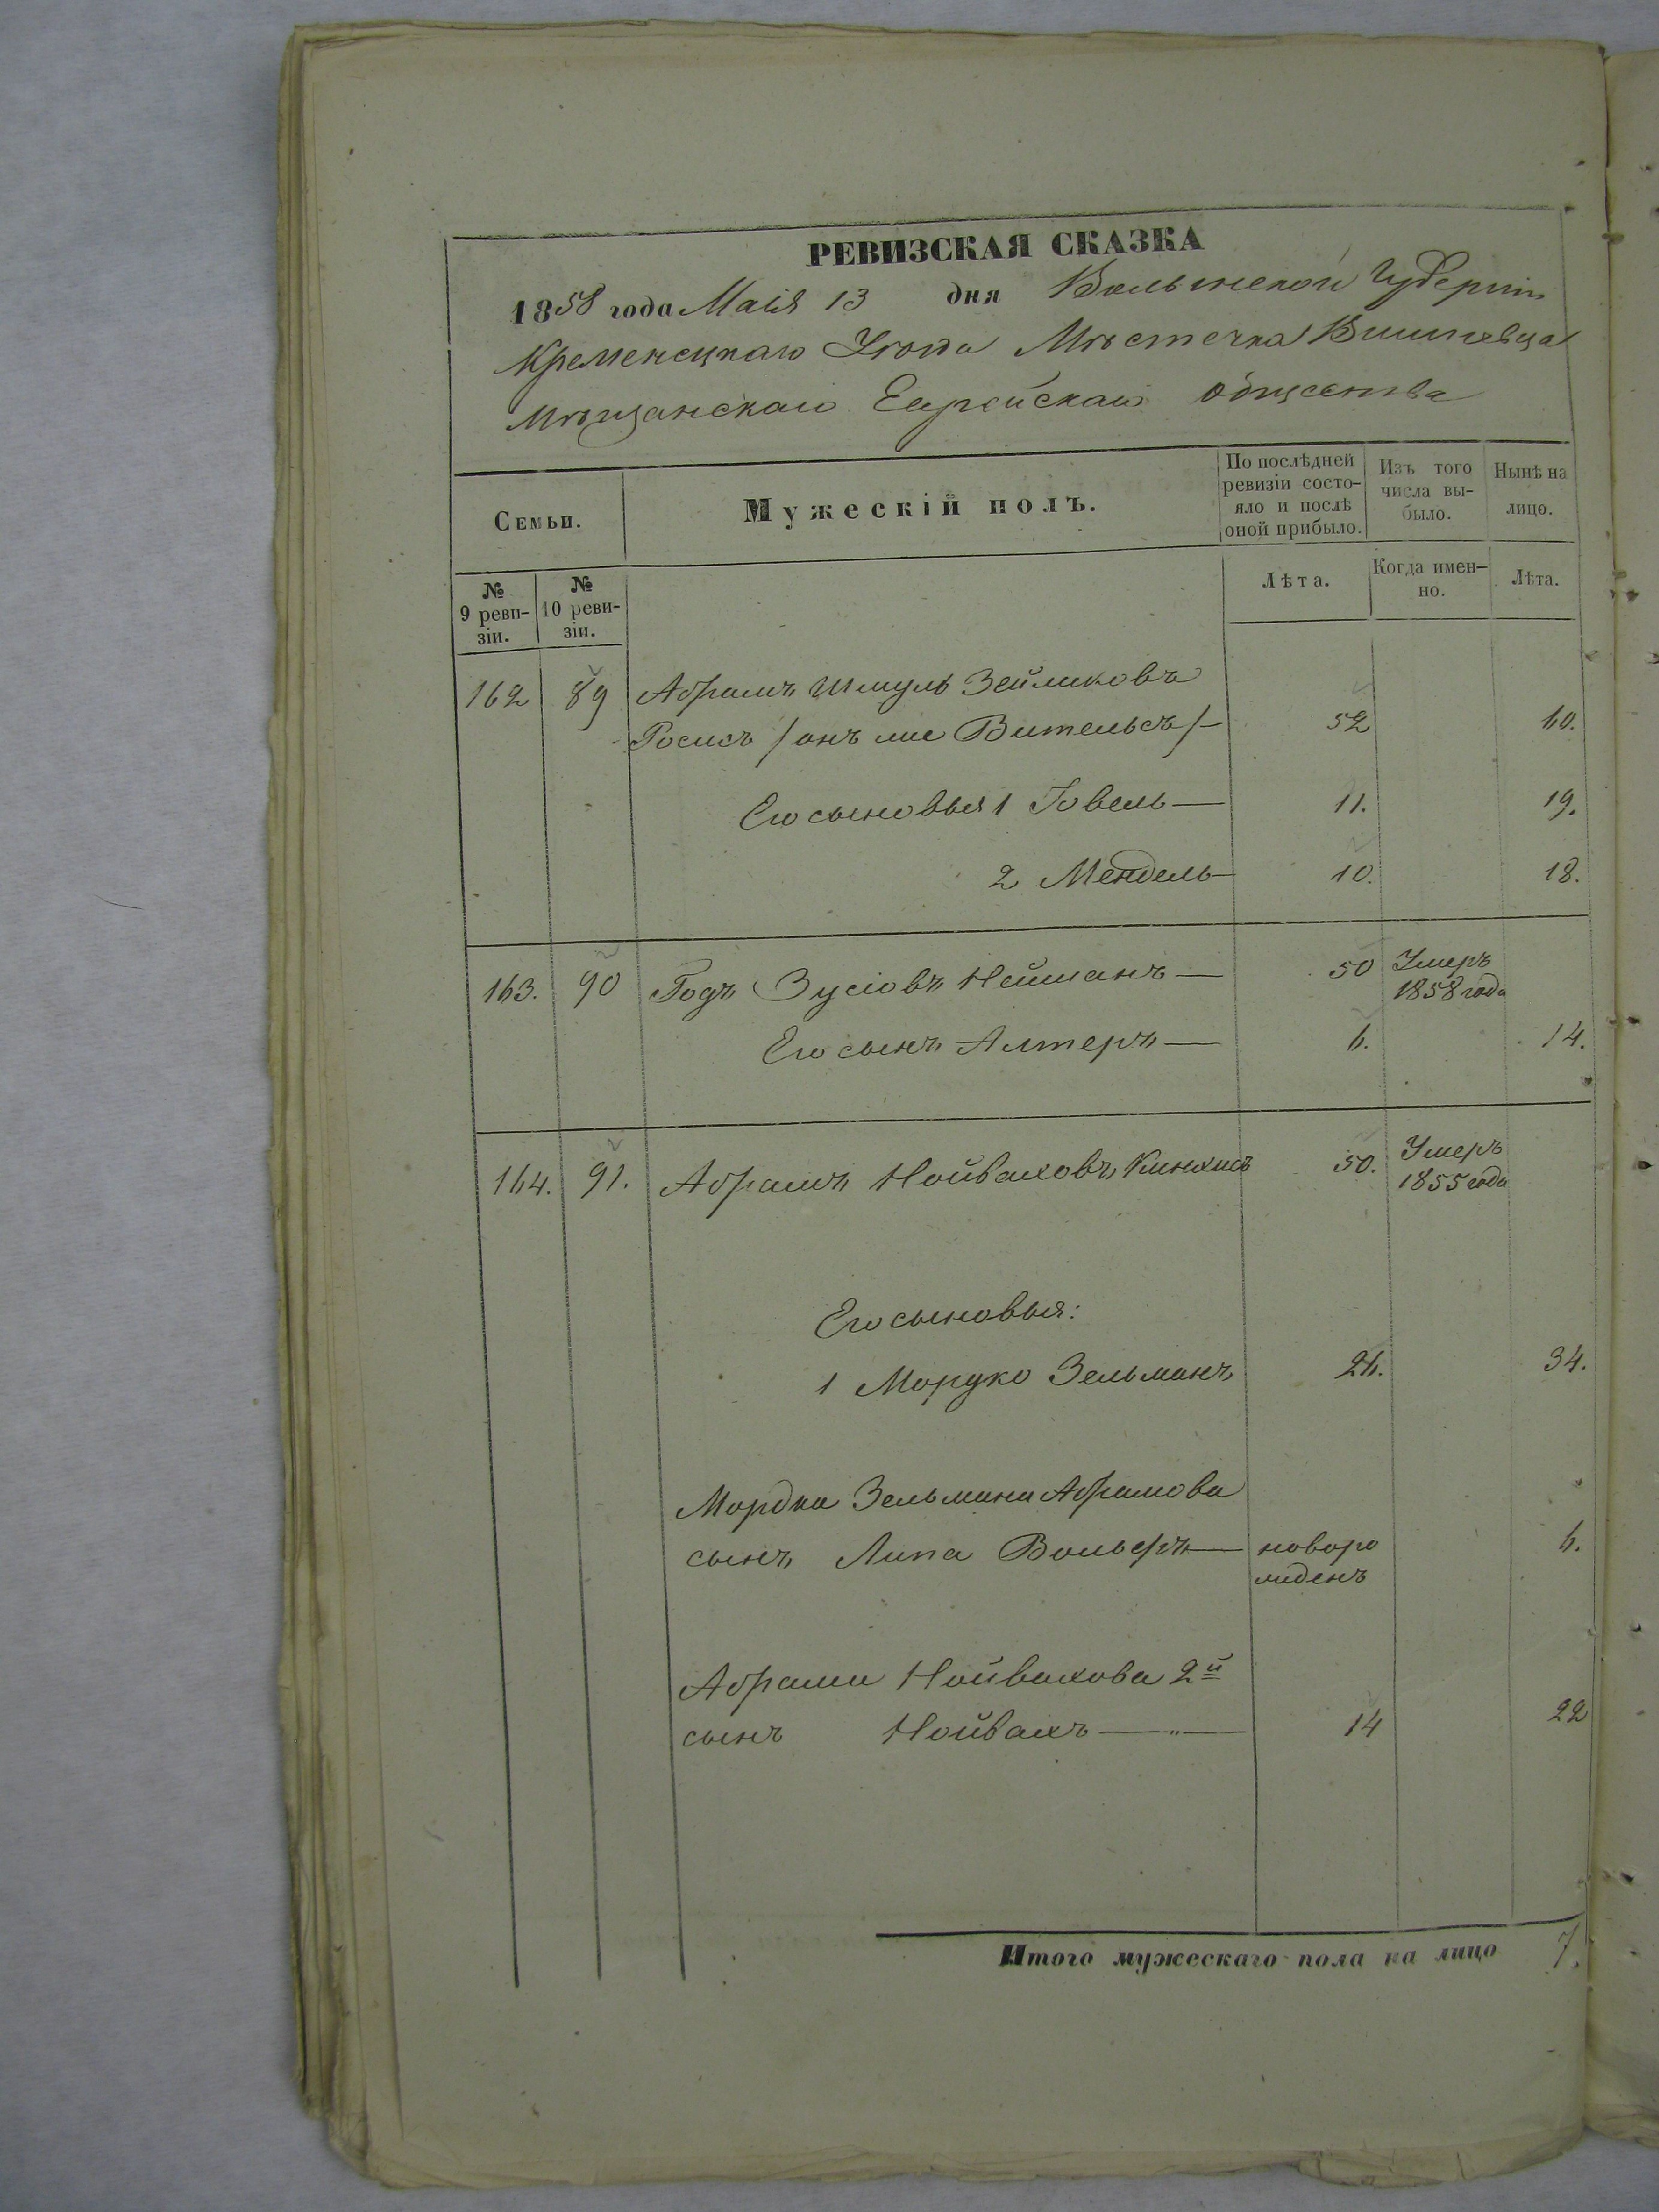 РЕВИЗСКАЯ СКАЗКА
1858 года Маія 13 дня Волынской Губерніи
Кременецкаго Уѣзда Мѣстечка Вишневца
Мѣщанскаго Еврейскаго общества
Семьи.
Мужескій полъ.
По послѣдней ревизіи состо-
яло и послѣ
оной прибыло.
Изъ того
числа вы-
было.
Нынѣ на
лицо.
№
9 реви-
зіи.
№
10 реви-
зіи.
Лѣта.
Когда имен-
но.
Лѣта.
162 89 Абрамъ Шмуль Зейликовъ
Росисъ /онъ же Вительсъ/ 52 60.
Его сыновья 1 Іовель 11. 19.
2 Мендель 10. 18.
163. 90 Годъ Зусіовъ Нейманъ 50 Умеръ
1858 года
Его сынъ Алтеръ 6. 14.
164. 91. Абрамъ Нойваховъ 50. Умеръ
1855 года
Его сыновья:
1 Мордко Зельманъ 26. 34.
Мордка Зельмана Абрамова
сынъ Липа Вольфъ новоро 6.
жденъ
Абрама Нойвахова 2й
сынъ Нойвахъ — " — 14 22
Итого мужескаго пола на лицо 7.